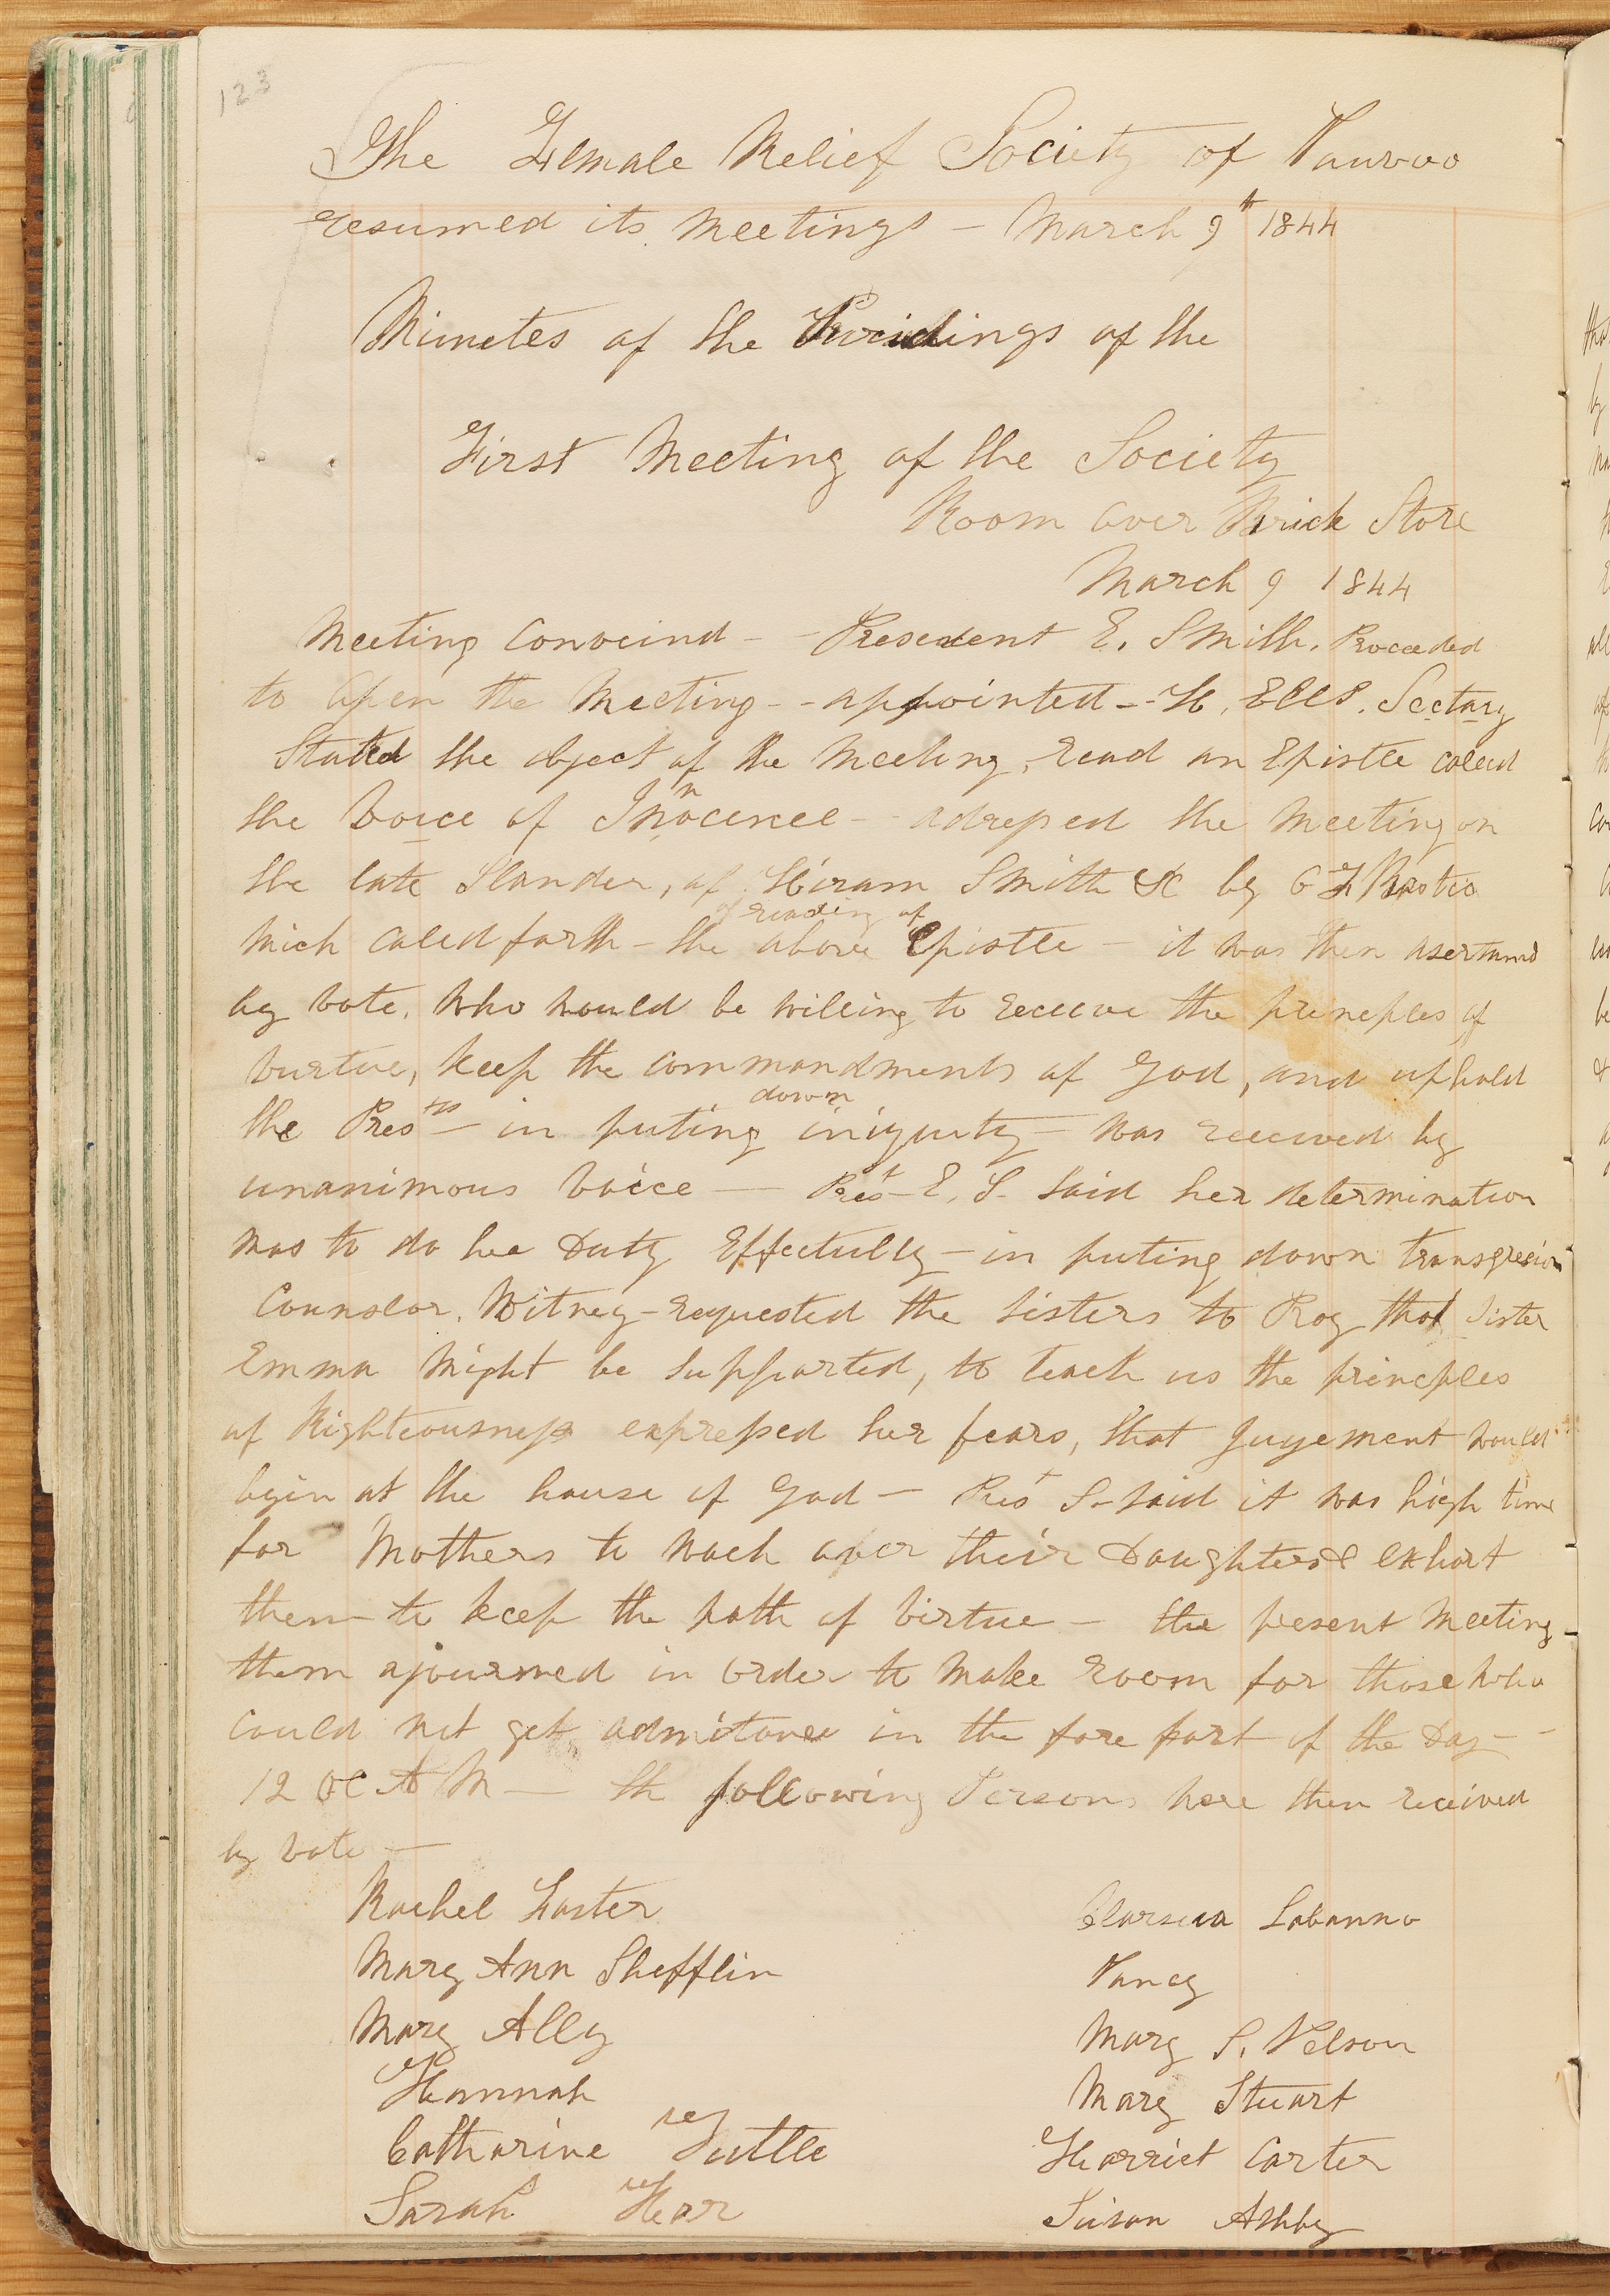 123
The Female Relief Society of Nauvoo
resumed its meetings - March 9th 1844
Minetes of the Procidings of the
First Meeting of the Society
Room over Brick Store
March 9 1844
Meeting Conveind - - Presedent E. Smith. Proceeded
to open the meeting - - appointed - - H, Ells. Sectary
Stated the object of the meeting, read an Epistle caleed
the Voice of Innocence - adressed the meeting on
the late Slander, of Hiram Smith &c by O F Bostic
wich caled forth - the reading of above Epistle - it was then asertaind
by vote, who would be willing to receive the principles of
vurtue, keep the commandments of God, and uphold
the Pres- in puting down iniquity - was received by
unanimous voice — Prest E. S. said her determination
was to do her Duty Effectully - in puting down transgresion
Counslor. Witney - requested the sisters to Pray that Sister
Emma might be supported, to teach us the principles
of Righteousness expressed her fears, that Jugement would
begin at the house of God — Prest S - said it was high time
for Mothers to wach over their Daughters & exhort
them to keep the path of virtue - the present meeting
them ajourned in order to make room for those who
could not get admitance in the fore part of the Day -
12 oc A M — th following Persons were then received
by vote —
Rachel Foster
Mary Ann Shefflin
Mary Ally
Hannah
Catharine Tuttle
Sarah Hear
Labanno
Nancy
Mary S. Nelson
Mary Stuart
Harriet Carter
Susan Ashby